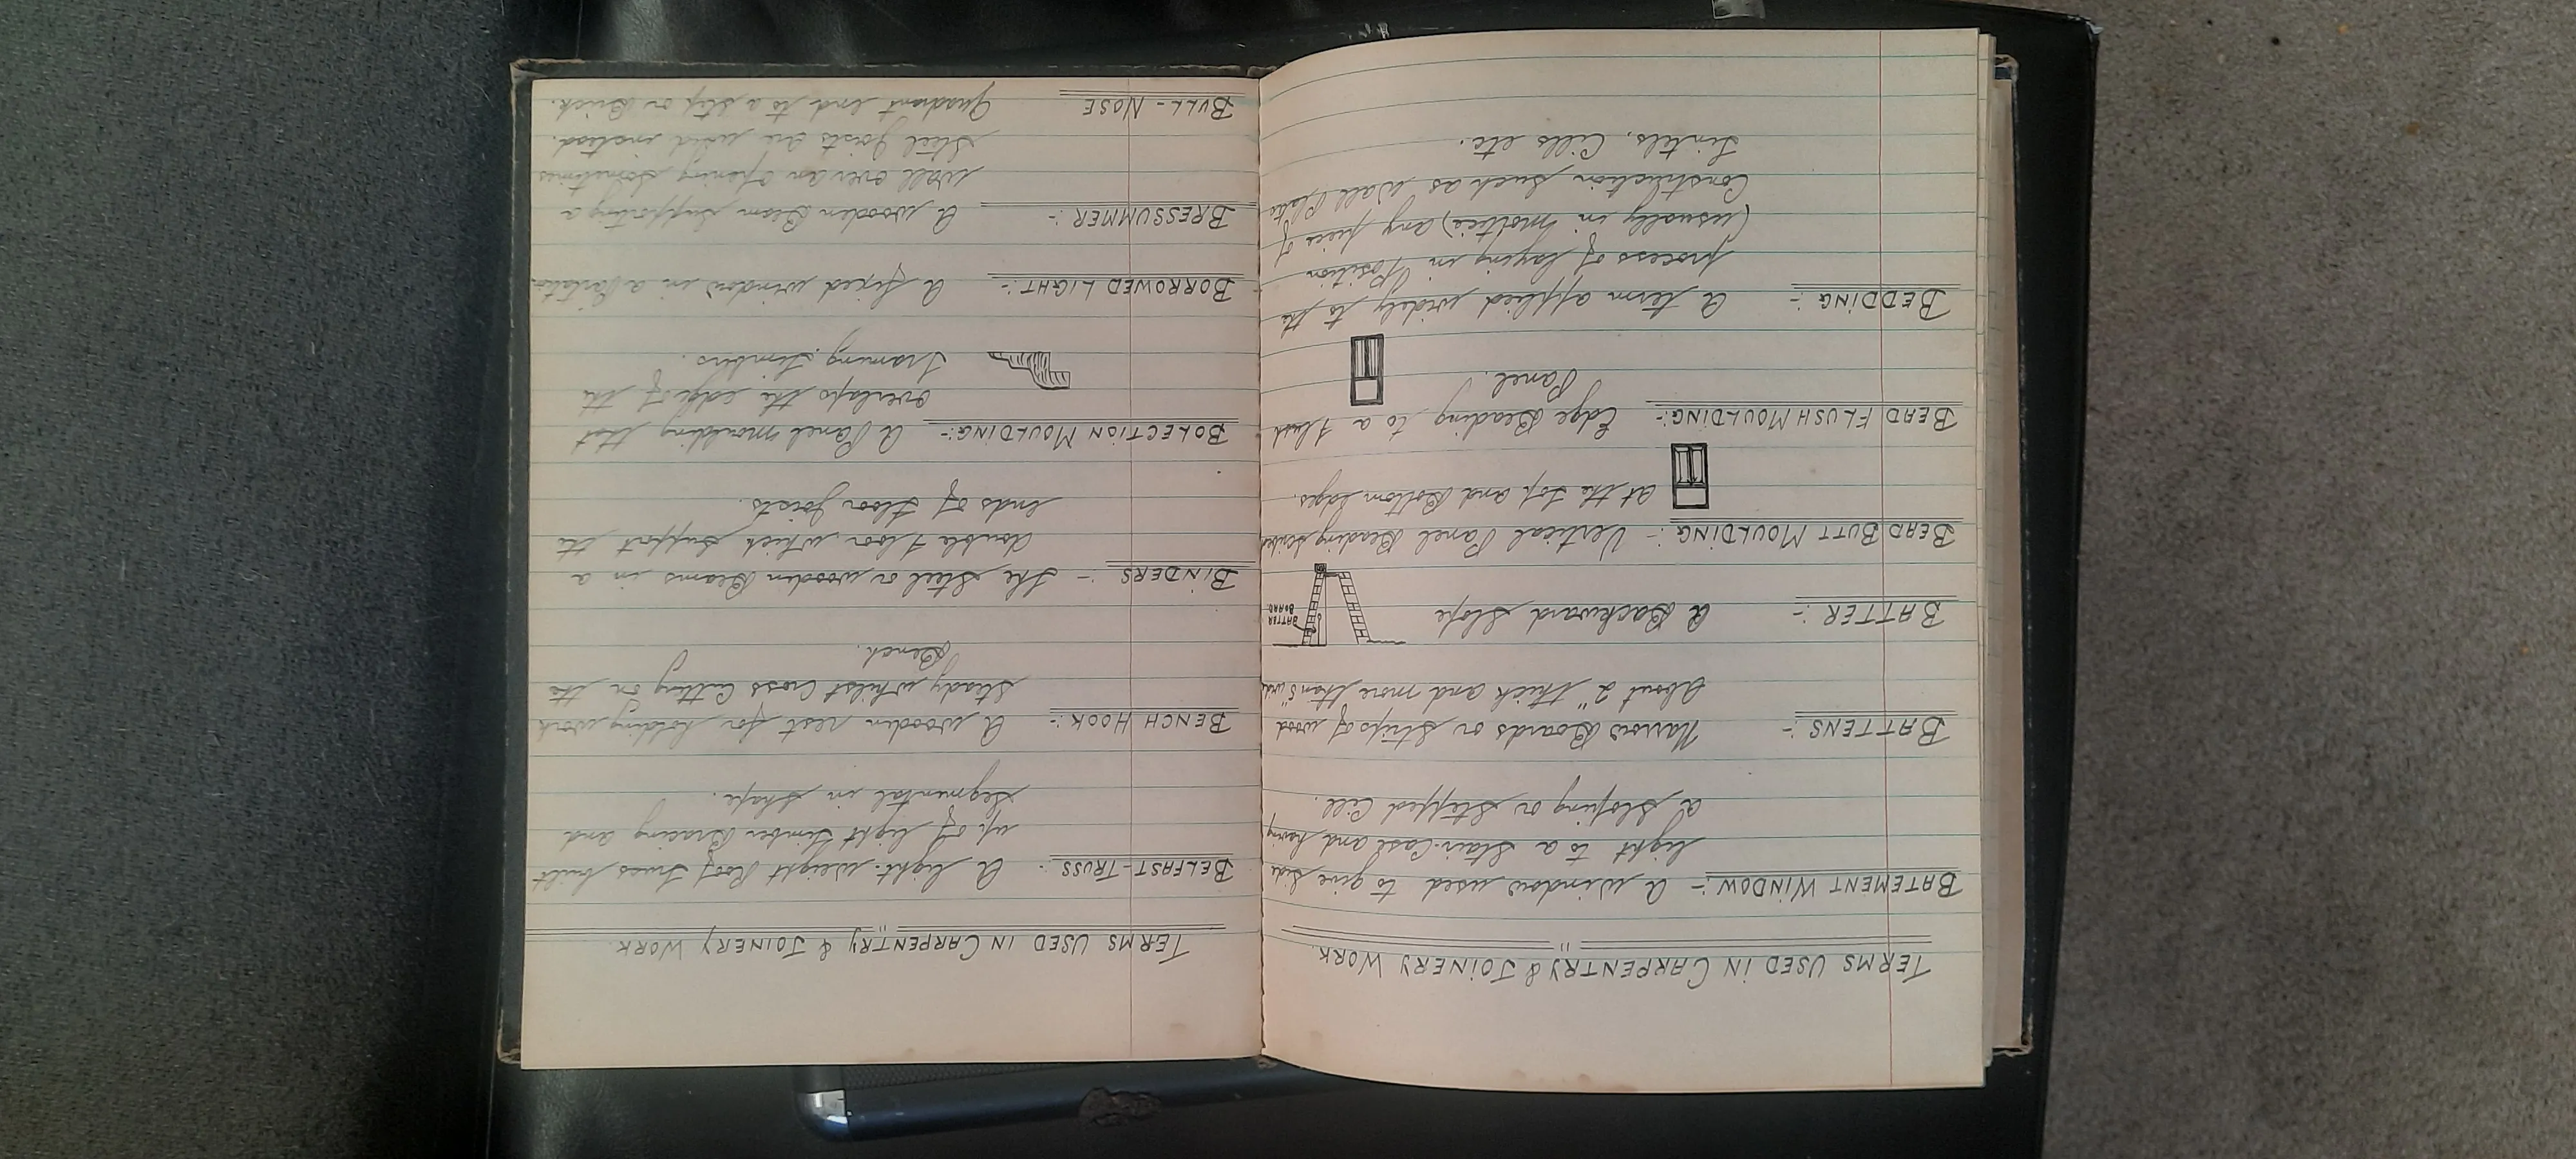 TERMS USED IN CARPENTRY & JOINERY WORK.
BATEMENT WINDOW:- A window used to give side
light to a Stair-Case and having
a Sloping or Stepped Cill.
BATTENS :- Narrow Boards or Strips of wood
about 2" thick and more than 5" wide
BATTER :- A Backward Slope
BATTER
BOARD
BEAD BUTT MOULDING :- Vertical Panel Beading scribed
at the Top and Bottom edges.
BEAD FLUSH MOULDING:- Edge Beading to a Flush
Panel.
BEDDING :- A term applied widely to the
process of laying in Position
(usually in mortice) any piece of
Construction such as Wall Plate
Lintels, Cills etc.
TERMS USED IN CARPENTRY & JOINERY WORK.
BELFAST-TRUSS :- A light-weight Roof Truss built
up of light Timber Bracing and
Segmental in shape.
BENCH HOOK:- A wooden rest for holding work
steady whilst Cross Cutting on the
Bench.
BINDERS :- The Steel or wooden Beams in a
double Floor which Support the
ends of Floor Joists.
BOLECTION MOULDING:- A Panel moulding that
overlaps the edge of the
Framing Timbers.
BORROWED LIGHT:- A fixed window in a Partition
BRESSUMMER:- A wooden Beam Supporting a
wall over an opening, Sometimes
Steel Joists are used instead.
BULL-NOSE Quadrant end to a Step or Brick.